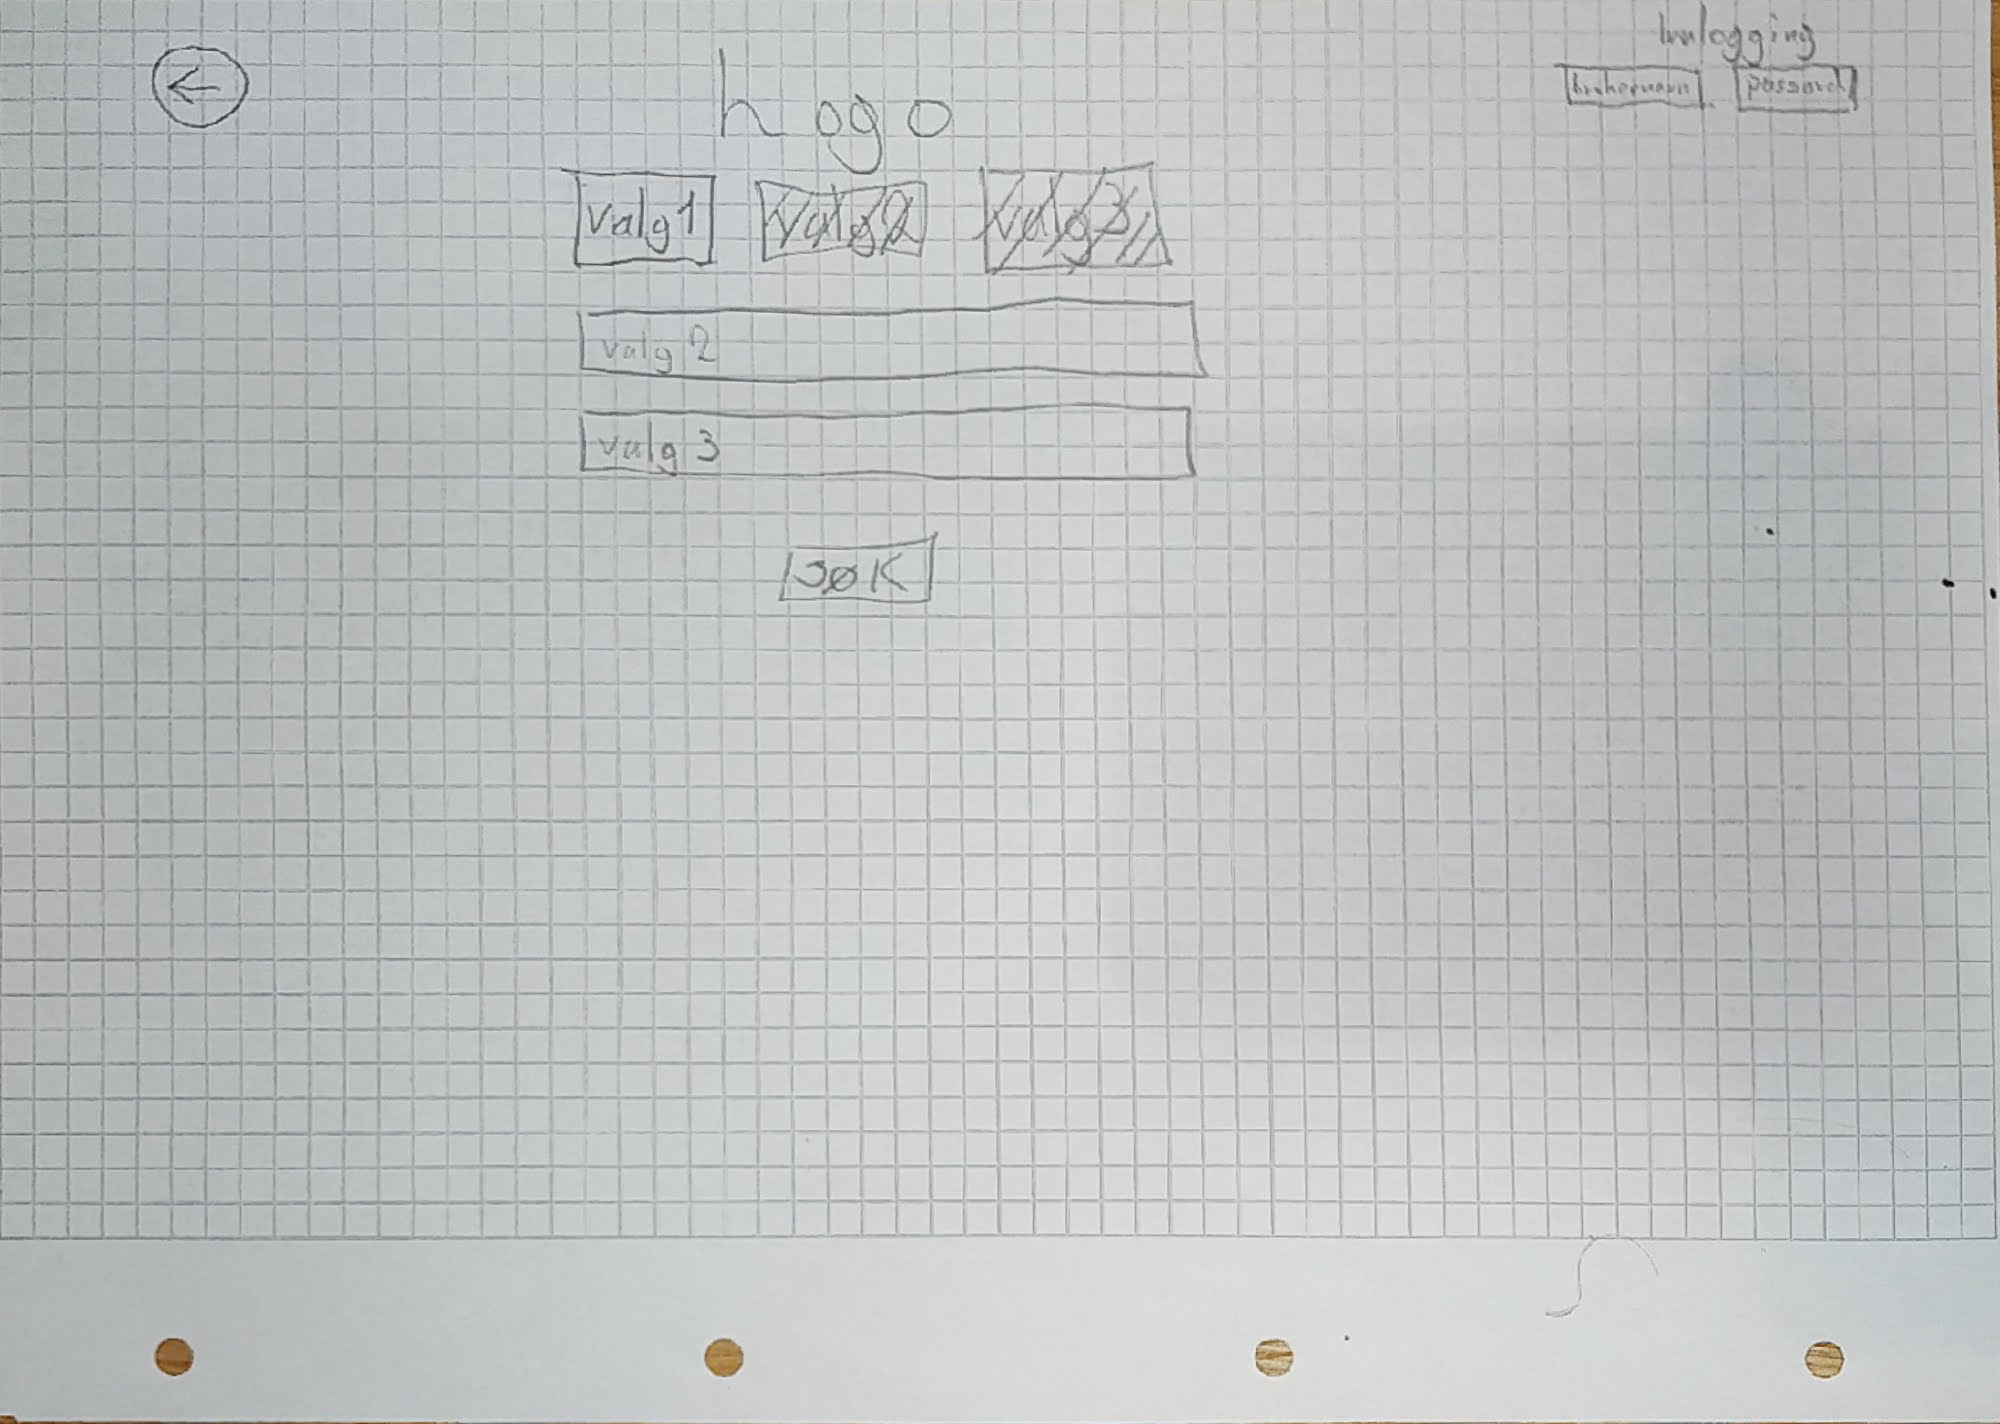 Innlogging
brukernavn passord
hogo
valg 1 valg 2 valg 3
valg 2
valg 3
SØK